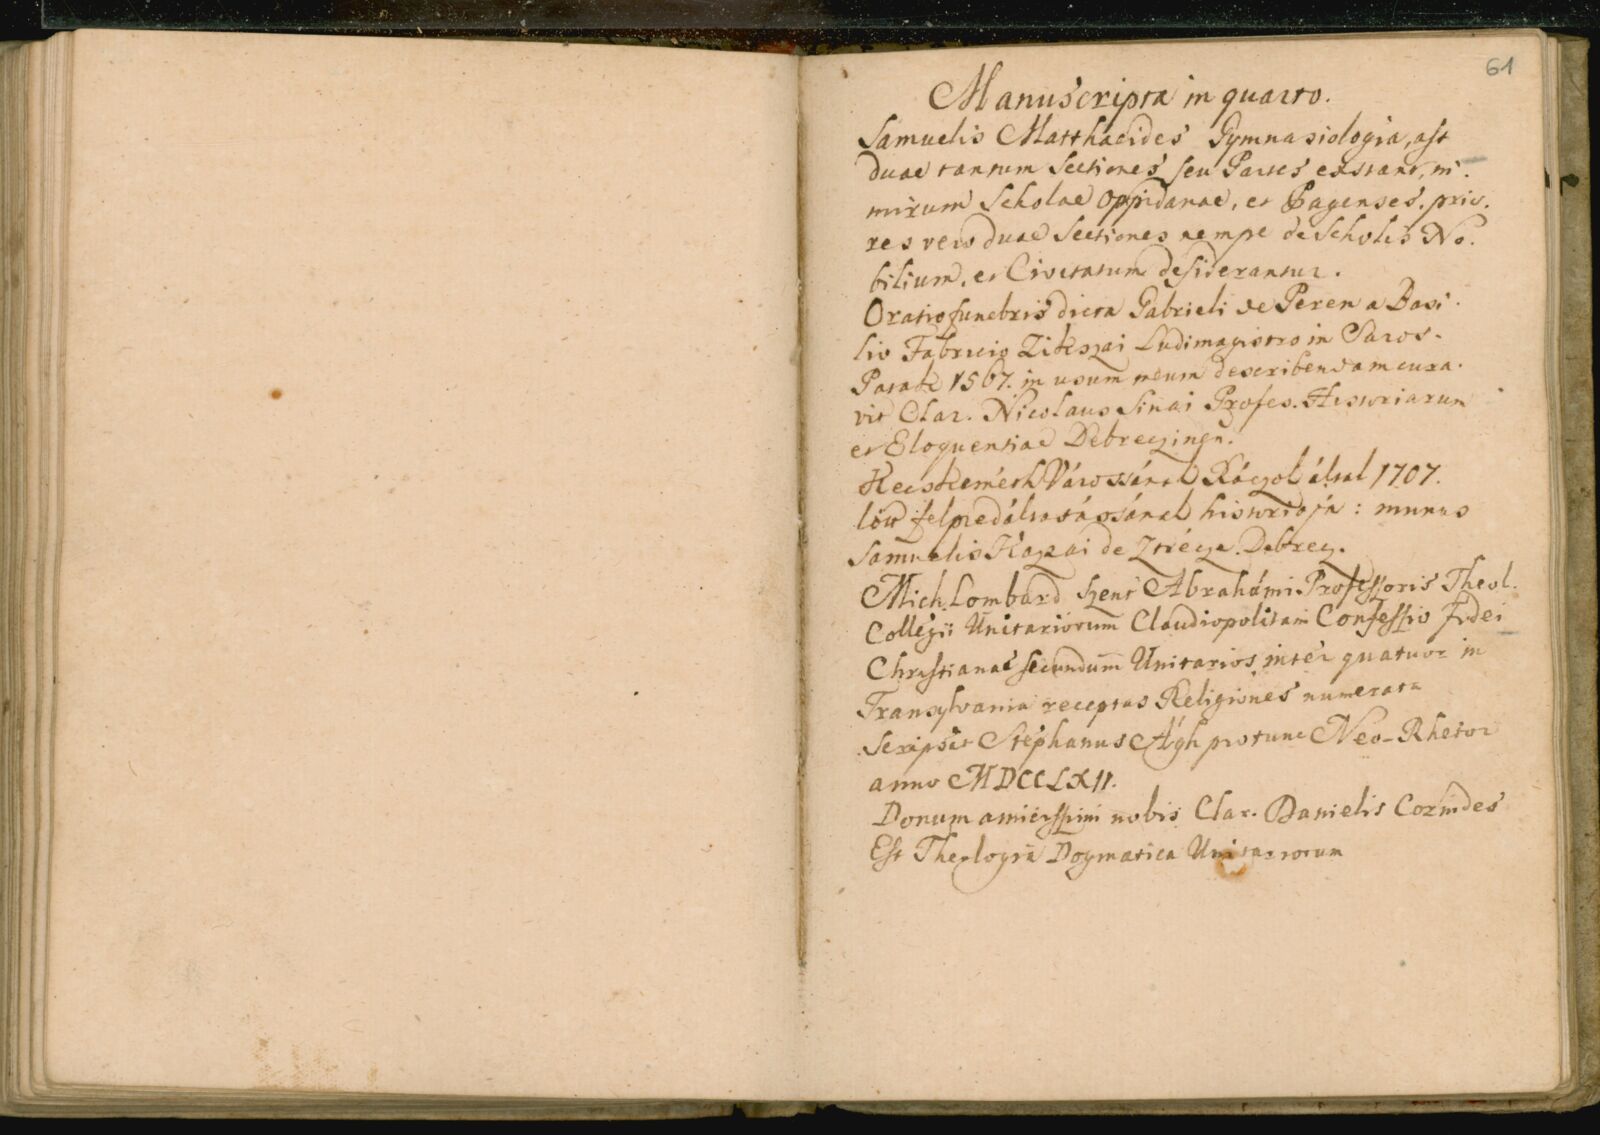 61
Manuscripta in quarto.
Samuelis Matthaeides Gymnasiologia, ast
duae tantum Sectiones seu Partes exstant, ni.
mirum Scholae Oppidanae, et Pagenses. prio.
res vero duae Sectiones nempe de Scholis No.
bilium, et Civitatum desiderantur.
Oratio funebris dicta Gabrieli de Peren a Basi.
lio Fabricio Ludimagistro in Saros.
Patak 1567. in usum meum describendam cura.
vit Clar. Nicolaus Sinai Profes. Historiarum
et Eloquentiae Debreczinen.
Kecskeméth Várossának Ráczok által 1707.
lött felpredáltatásának historiája: munus
Samuelis Kazai de Debrecz.
Mich. Lombard Szent Abrahámi Professoris Theol.
Collegii Unitariorum Claudiopolitani Confessio Fidei
Christianae secundum Unitarios inter quatuor in
Transylvania receptas Religiones numerata
Scripsit Stephanus Ágh pro tunc Neo-Rhetor
anno MDCCLXII.
Donum amicissimi nobis Clar. Danielis Cornides
Est Theologia Dogmatica Unitariorum